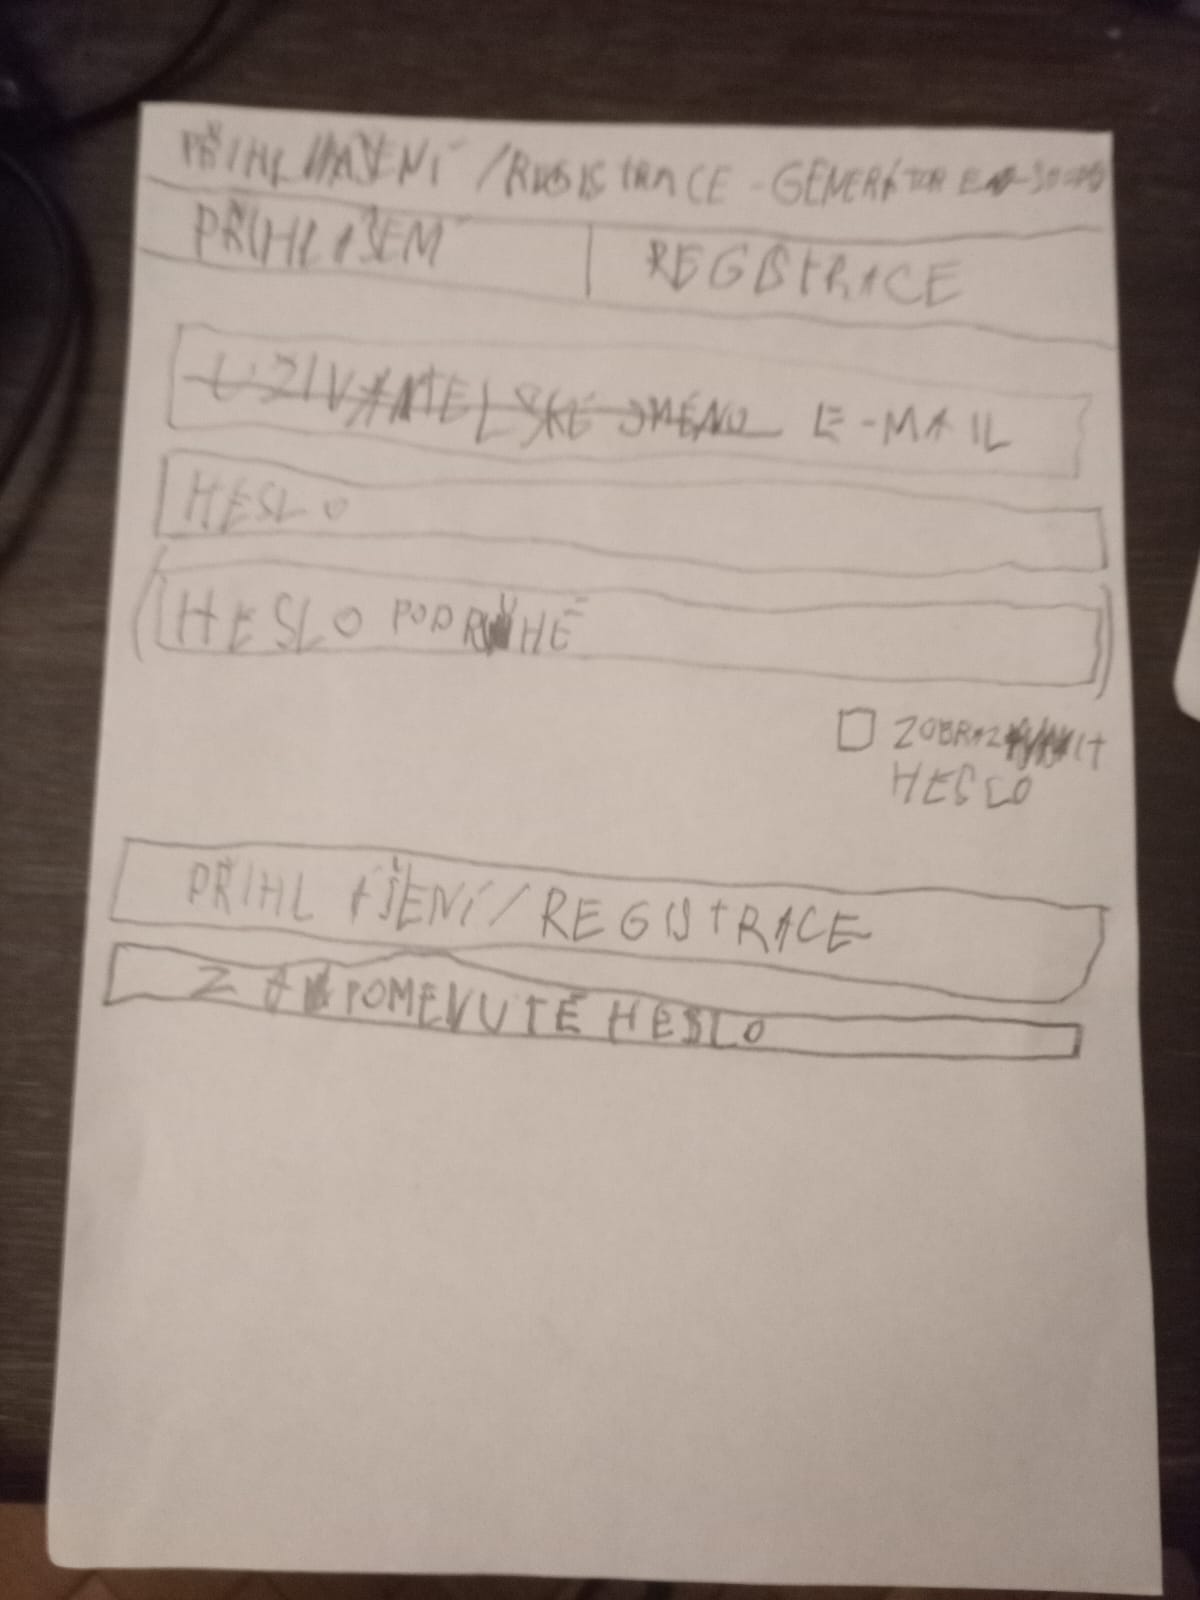 PŘIHLÁŠENÍ / REGISTRACE - GENERÁTOR
PŘIHLÁŠENÍ | REGISTRACE
UŽIVATELSKÉ JMÉNO E-MAIL
HESLO
HESLO PODRUHÉ
ZOBRAZIT
HESLO
PŘIHLÁŠENÍ / REGISTRACE
ZAPOMENUTÉ HESLO